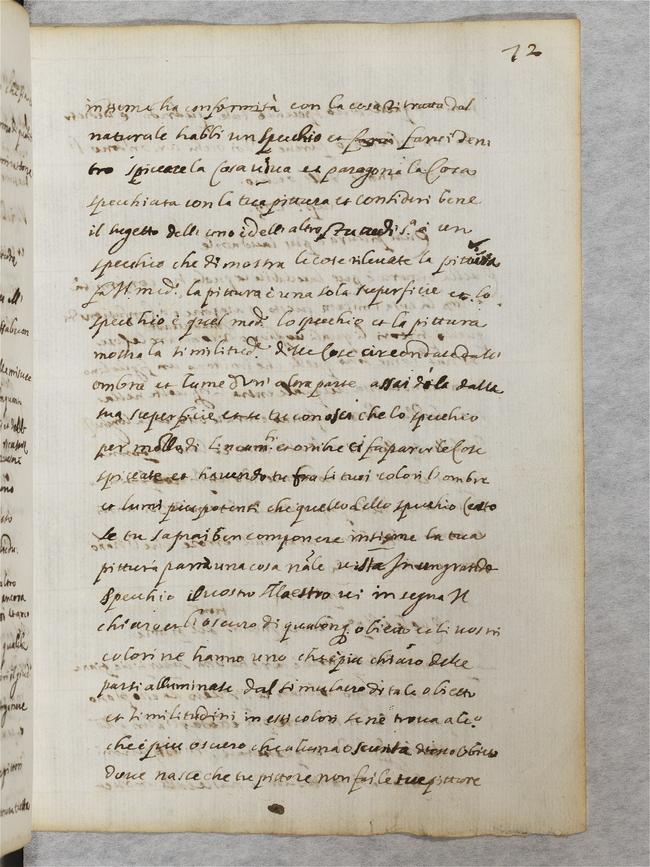 72
insieme ha conformità con la cosa ritratta dal
naturale habbi un specchio et farai farci den
tro spiccare la cosa viva et paragona la cosa
specchiata con la tua pittura et consideri bene
il sugetto dell uno e dell altro
specchio che dimostra le cose rilevate la pittura
fa il med.º la pittura è una sola superficie et lo
specchio è quel med.º lo specchio et la pittura
mostra la similitud.e delle cose circondate dall
ombra et lume assai di là dalla
sua superficie et se tu conosci che lo specchio
per mezzo di lineam.ti et ombre ti fa parer le cose
spiccate et havendo tu fra li tuoi colori l ombre
et lumi piu potenti che quello dello specchio certo
se tu saprai ben componere insieme la tua
pittura parrà una cosa n̄ale vista in un grande
specchio il vostro Maestro vi insegna il
chiaro et l oscuro di qualonq obietto et li vostri
colori ne hanno uno che è piu chiaro delle
parti alluminate del simulacro di tale obietto
et similitudini in essi colori se ne trova alc.º
che è piu oscuro che alcuna oscurità di esso obietto
dove nasce che tu pittore non fai le tue pitture